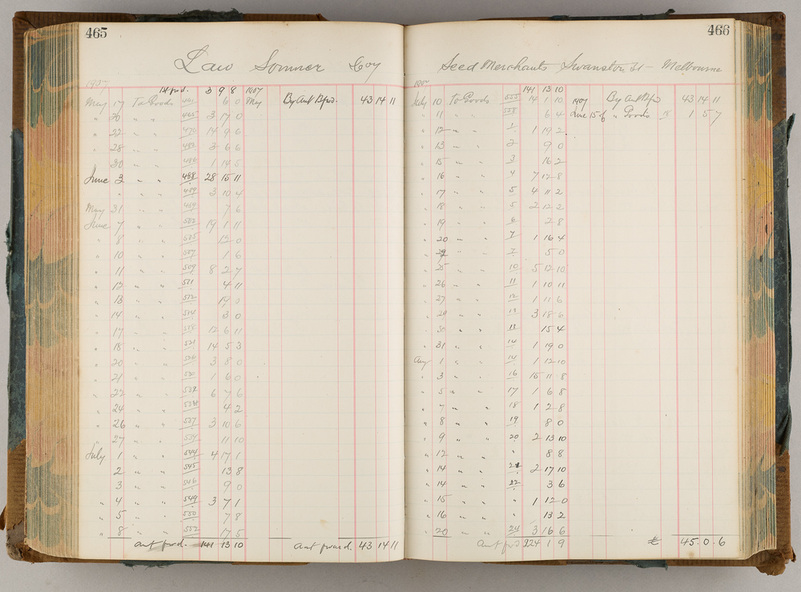 465
Law Somner & Coy
1907
Amt fwd. 3 9 8 1907
May 17 To Goods 6 0 May By Amt Bfwd. 43 14 11
" 20 " " 3 17 0
" 22 " " 14 9 0
" 28 " " 3 6 6
" 30 " " 1 14 5
June 3 " " 498 28 15 11
" " " 3 10 4
May 31 " " 7 6
June 7 " " 19 1 11
" 8 " " 12 0
" 10 " " 1 6
" 11 " " 509 8 2 7
" 12 " " 511 4 11
" 13 " " 512 19 0
" 14 " " 514 3 0
" 17 " " 12 6 11
" 18 " " 14 5 3
" 20 " " 3 8 0
" 21 " " 1 6 0
" 22 " " 6 7 6
" 24 " " 4 2
" 26 " " 537 3 10 6
" 27 " " 11 10
July 1 " " 544 4 17 1
" 2 " " 545 13 8
" 3 " " 546 9 0
" 4 " " 549 3 7 1
" 5 " " 7 8
" 8 " " 552 17 5
Amt fwd. 141 13 10 Amt forwd. 43 14 11
466
Seed Merchants Swanston St - Melbourne
1907 141 13 10
July 10 To Goods 14 1 10 1907 By Amt Bfwd 43 14 11
" 11 " " 6 4 June 15 " Goods 1 5 7
" 12 " " 1 19 2
" 13 " " 9 0
" 15 " " 3 16 2
" 16 " " 4 7 12 8
" 17 " " 5 4 11 2
" 18 " " 5 2 12 2
" 19 " " 6 2 8
" 20 " " 7 1 16 4
" " " 5 0
" 25 " " 10 5 12 10
" 26 " " 11 1 10 11
" 27 " " 12 1 11 6
" 29 " " 13 3 18 6
" 30 " " 13 15 4
" 31 " " 14 1 19 0
Aug 1 " " 14 1 12 10
" 3 " " 16 15 11 8
" 5 " " 17 1 6 8
" 7 " " 18 1 2 8
" 8 " " 19 8 0
" 9 " " 20 2 13 10
" 12 " " " 8 8
" 14 " " 21 2 17 10
" 14 " " 22 3 6
" 15 " " " 1 12 0
" 16 " " " 13 2
" 20 " " 24 3 16 6
Amt fwd 224 1 9 £ 45 . 0 . 6